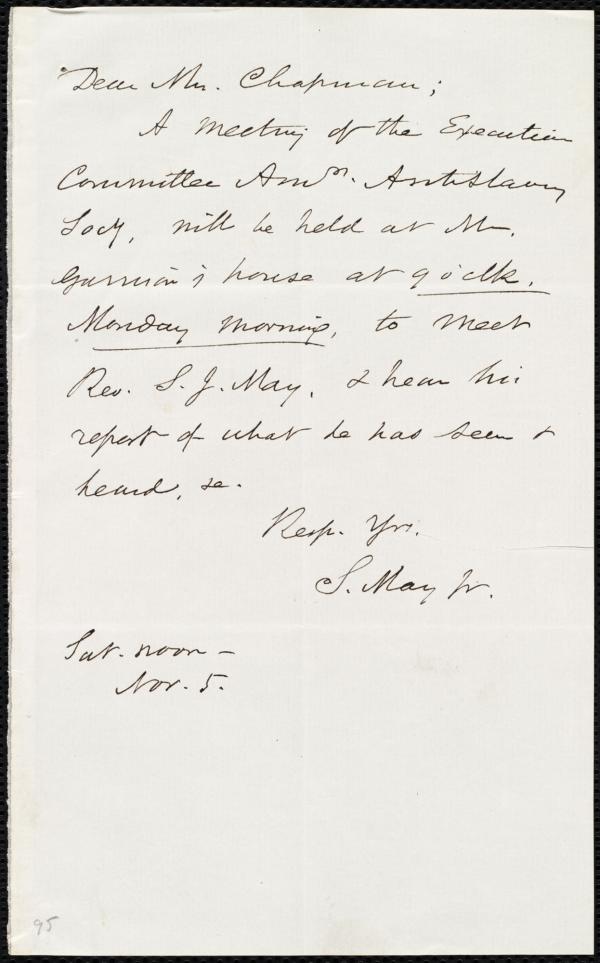 Dear Mrs. Chapman;
A meeting of the Executive
Committee Amn. Antislavery
Socy, will be held at Mr.
Garrison's house at 9 o'clk.
Monday morning, to meet
Rev. S. J. May, & hear his
report of what he has seen &
heard, &c.
Resp. Yrs.
S. May Jr.
Sat. noon –
Nov. 5.
95